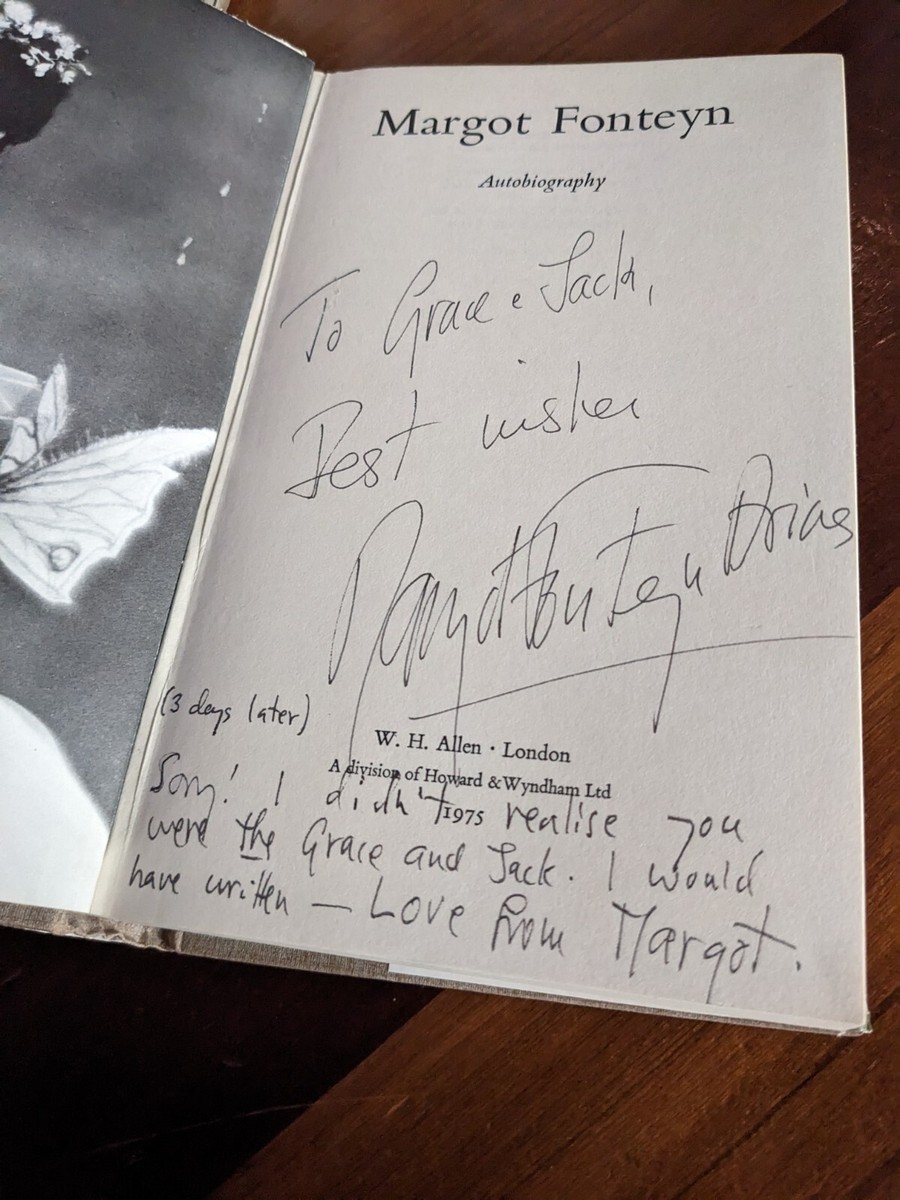 Margot Fonteyn
Autobiography
To Grace e Jack,
Best wishes
Margot Fonteyn Arias
(3 days later)
W. H. Allen · London
A division of Howard & Wyndham Ltd
1975
Sorry! I didn't realise you
were the Grace and Jack. I would
have written — Love from Margot.